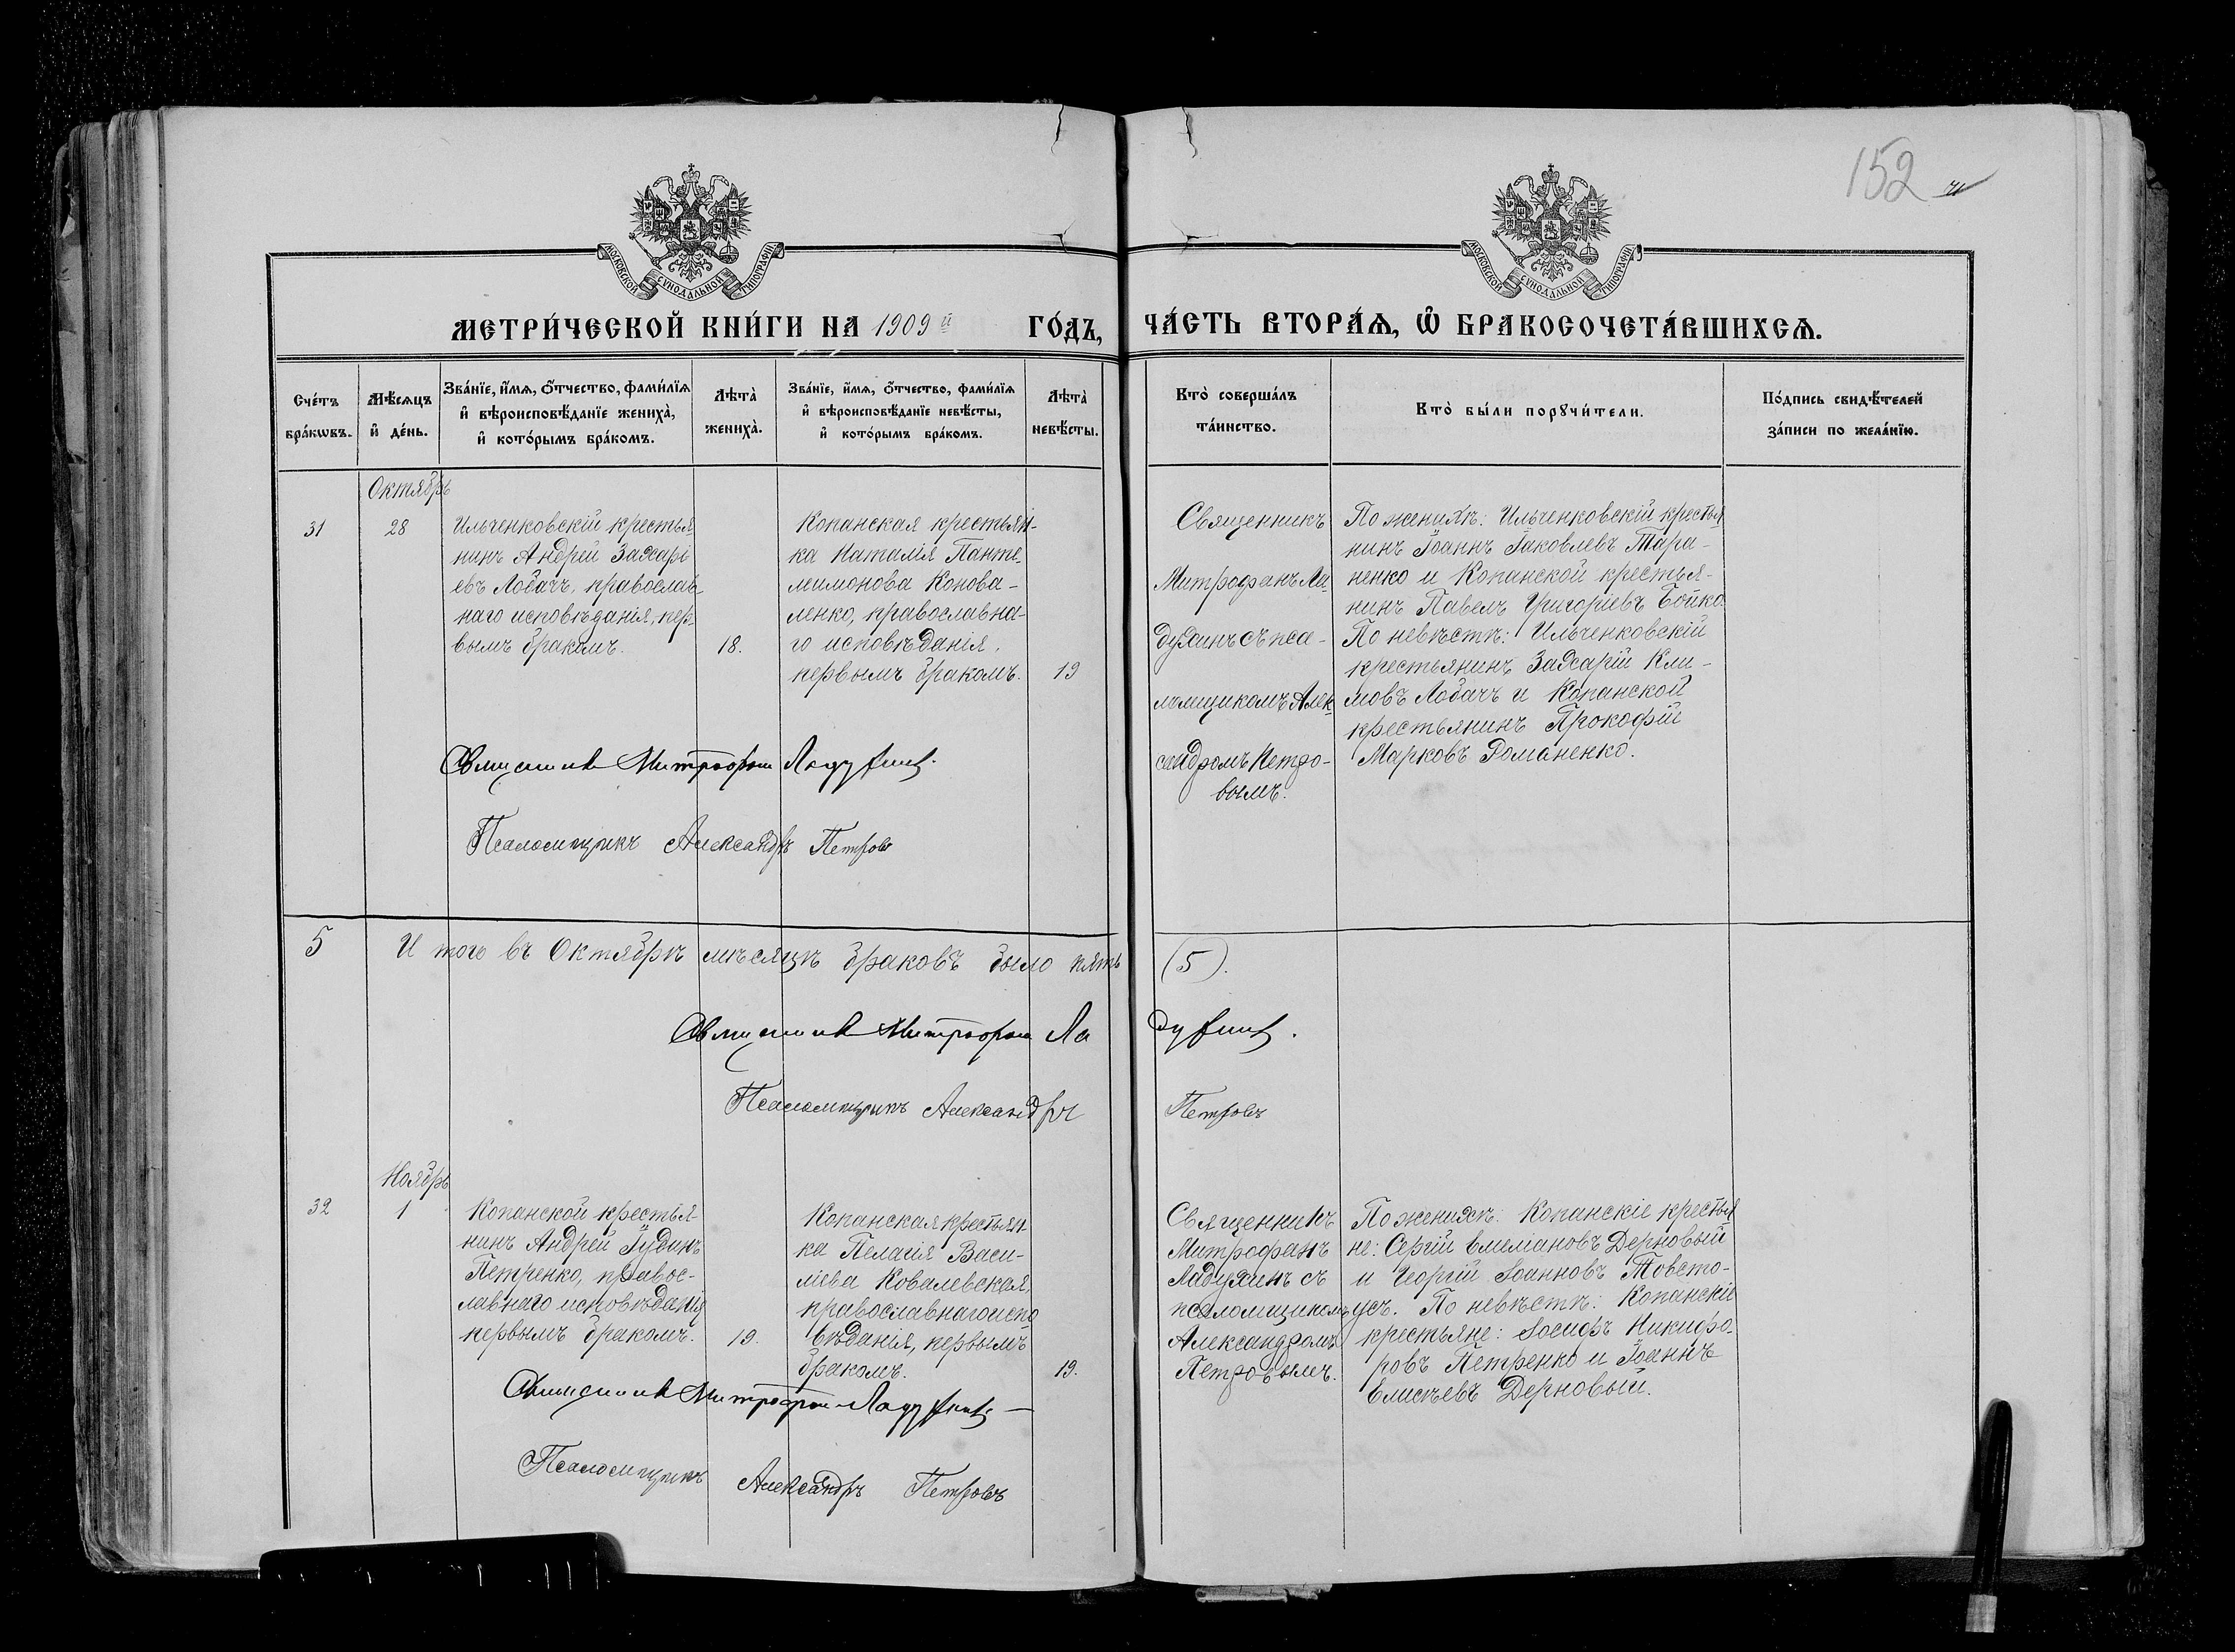 152
МОСКОВСКОЙ СУНОДАЛЬНОЙ ТИПОГРАФІИ
МОСКОВСКОЙ СУНОДАЛЬНОЙ ТИПОГРАФІИ
МЕТРИ́ЧЕСКОЙ КНИ́ГИ НА 1909й ГО́ДЪ, ЧА́СТЬ ВТОРА́Ѧ, Ѽ БРАКОСОЧЕТА́ВШИХСѦ.
Сче́тъ
бра́кѡвъ.
Мѣ́сѧцъ
и҆ де́нь.
Зва́нїе, и҆́мѧ, ѻ҆́тчество, фами́лїѧ
и҆ вѣроисповѣ́данїе жениха̀,
и҆ кото́рымъ бра́комъ.
Лѣта̀
жениха̀.
Зва́нїе, и҆́мѧ, ѻ҆́тчество, фами́лїѧ
и҆ вѣроисповѣ́данїе невѣ́сты,
и҆ кото́рымъ бра́комъ.
Лѣта̀
невѣ́сты.
Кто̀ соверша́лъ
та́инство.
Кто̀ бы́ли порꙋчи́тели.
По́дпись свидѣ́телей
за́писи по жела́нїю.
31
Октябрь
28
Ильченковскій крестья-
нинъ Андрей Захарі-
евъ Лобачъ, православ-
наго исповѣданія, пер-
вымъ бракомъ.
18.
Копанская крестьян-
ка Наталія Панте-
леимонова Конова-
ленко, православна-
го исповѣданія,
первымъ бракомъ.
19
Священникъ
Митрофанъ Ла-
духинъ съ пса-
ломщикомъ Алек-
сандромъ Петро-
вымъ.
По женихѣ: Ильченковскій крестья
нинъ Іоаннъ Іаковлевъ Тара-
ненко и Копанской крестья-
нинъ Павелъ Григоріевъ Бойко.
По невѣстѣ: Ильченковскій
крестьянинъ Захарій Кли-
мовъ Лобачъ и Копанской
крестьянинъ Прокофій
Марковъ Романенко.
Священник Митрофан Ладухинъ.
Псаломщикъ Александръ Петровъ
5
И того въ Октябрѣ мѣсяцѣ браковъ было пять (5).
Священник Митрофан Ладухинъ.
Псаломщикъ Александръ Петровъ
32
Ноябрь
1
Копанской крестья-
нинъ Андрей Іудинъ
Петренко, правос-
лавнаго исповѣданія
первымъ бракомъ.
19.
Копанская крестьян-
ка Пелагія Васи-
ліева Ковалевская,
православнаго испо
вѣданія, первымъ
бракомъ.
19.
Священникъ
Митрофанъ
Ладухинъ съ
псаломщикомъ
Александромъ
Петровымъ.
По женихѣ: Копанскіе крестья
не: Сергій Емеліановъ Дерновый
и Георгій Іоанновъ Товсто-
усъ. По невѣстѣ: Копанскіе
крестьяне: Іосифъ Никифо-
ровъ Петренко и Іоаннъ
Елисѣевъ Дерновый.
Священник Митрофан Ладухинъ
Псаломщикъ Александръ Петровъ